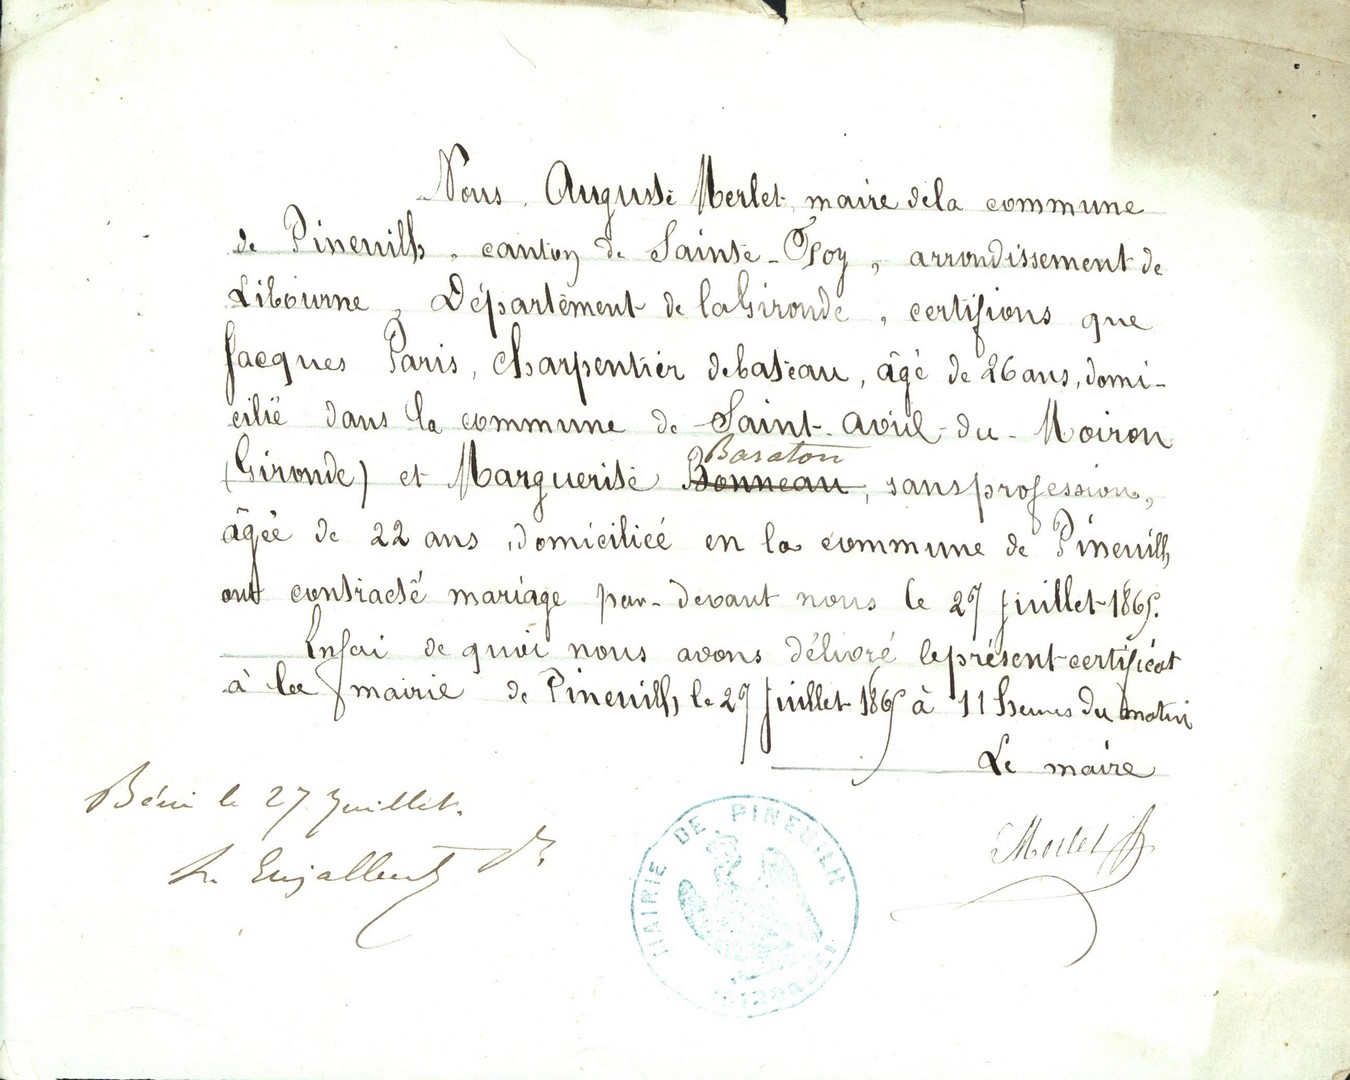 Nous, Auguste Merlet, maire de la commune
de Pineuilh, canton de Sainte-Foy, arrondissement de
Libourne, Département de la Gironde, certifions que
Jacques Paris, charpentier de bateau, âgé de 26 ans, domi-
cilié dans la commune de Saint-Avid-du-Moiron
Baraton
(Gironde) et Marguerite Bonneau, sans profession,
âgée de 22 ans, domiciliée en la commune de Pineuilh
ont contracté mariage par-devant nous le 27 juillet 1865.
En foi de quoi nous avons délivré le présent certificat
à la mairie de Pineuilh le 27 Juillet 1865 à 11 heures du matin
Le maire
Béni le 27 Juillet.
Merlet
MAIRIE DE PINEUILH